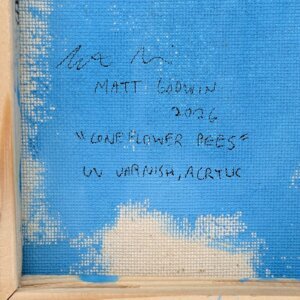 MATT GODWIN
2026
"CONEFLOWER BEES"
UV VARNISH, ACRYLIC